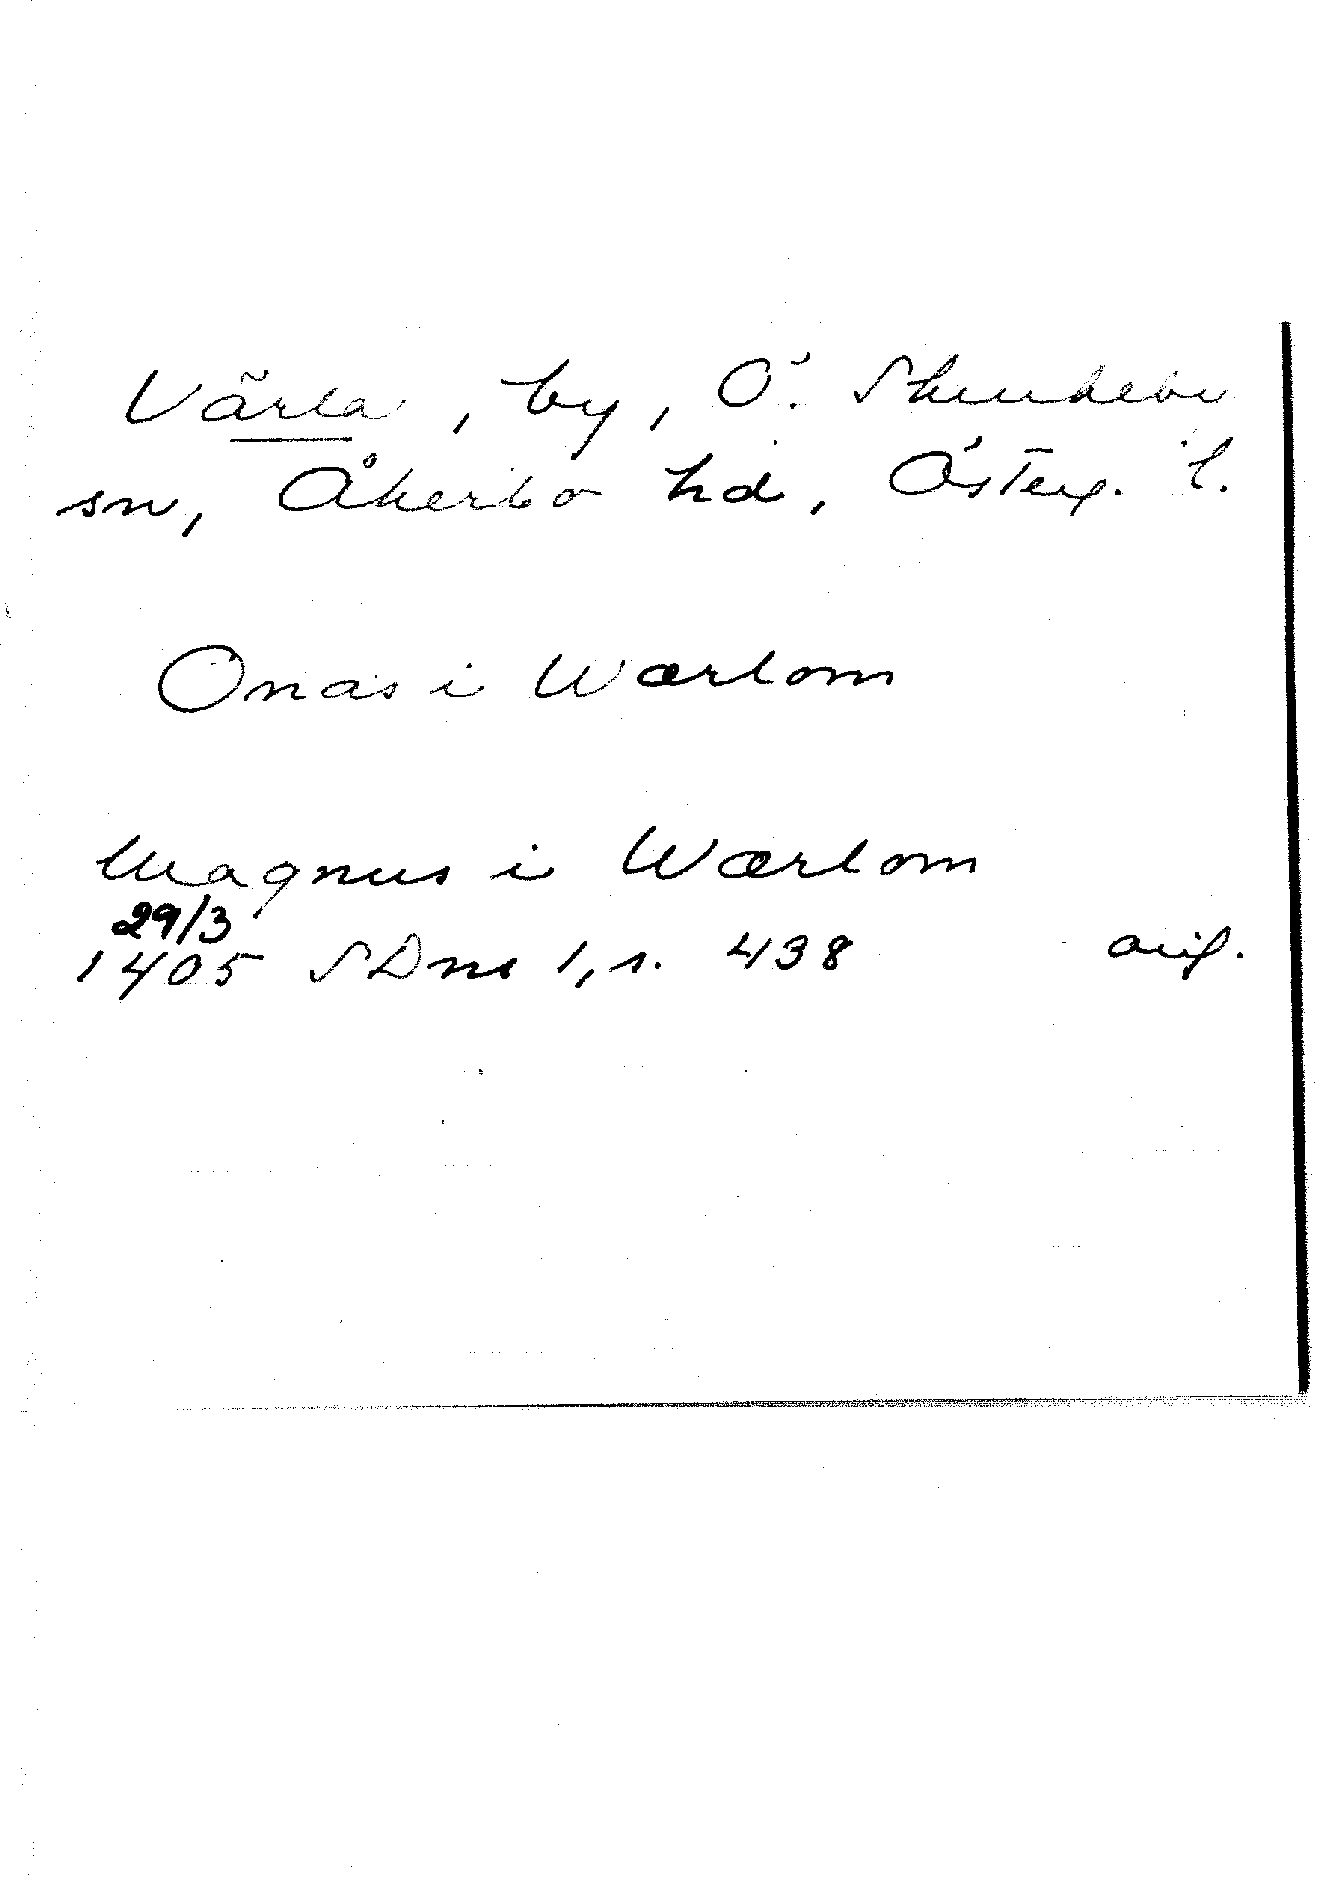 Värla, by, Ö. Skrukeby
sn, Åkerbo hd, Österg. l.
Onas i Wærlom
Magnus i Wærlom
29/3
1405 SDns 1, s. 438 orig.